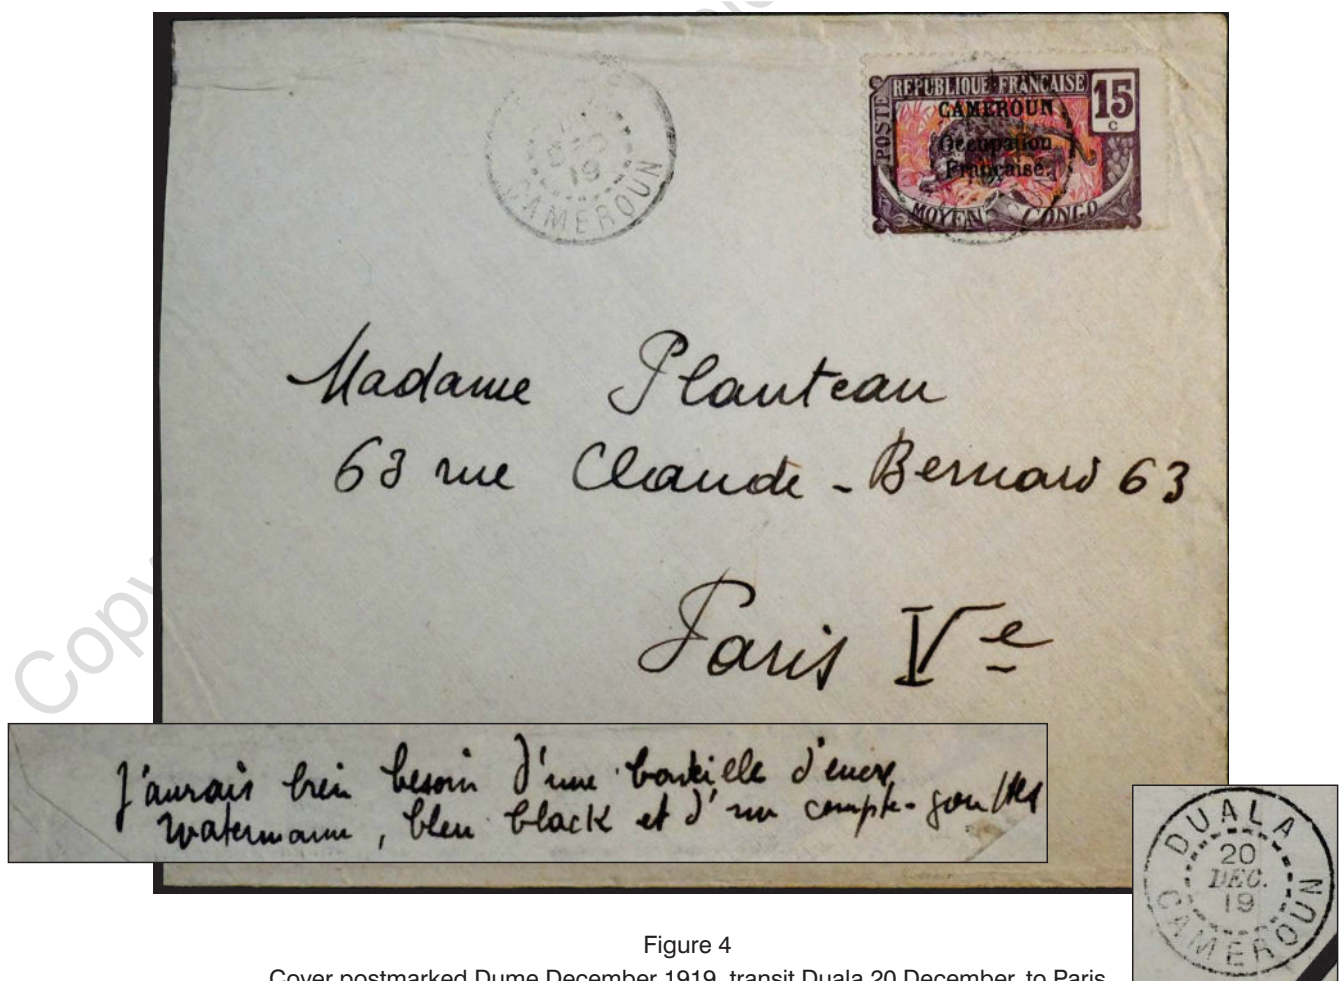 REPUBLIQUE FRANÇAISE
15
c
POSTE
CAMEROUN
Occupation
Française.
MOYEN CONGO
DEC
19
CAMEROUN
Madame Planteau
63 rue Claude-Bernard 63
Paris Ve
J'aurais bien besoin d'une bouteille d'encre
Watermann, bleu black et d'un compte-gouttes
DUALA
20
DEC.
19
CAMEROUN
Figure 4
Cover postmarked Dume December 1919, transit Duala 20 December, to Paris
Copy